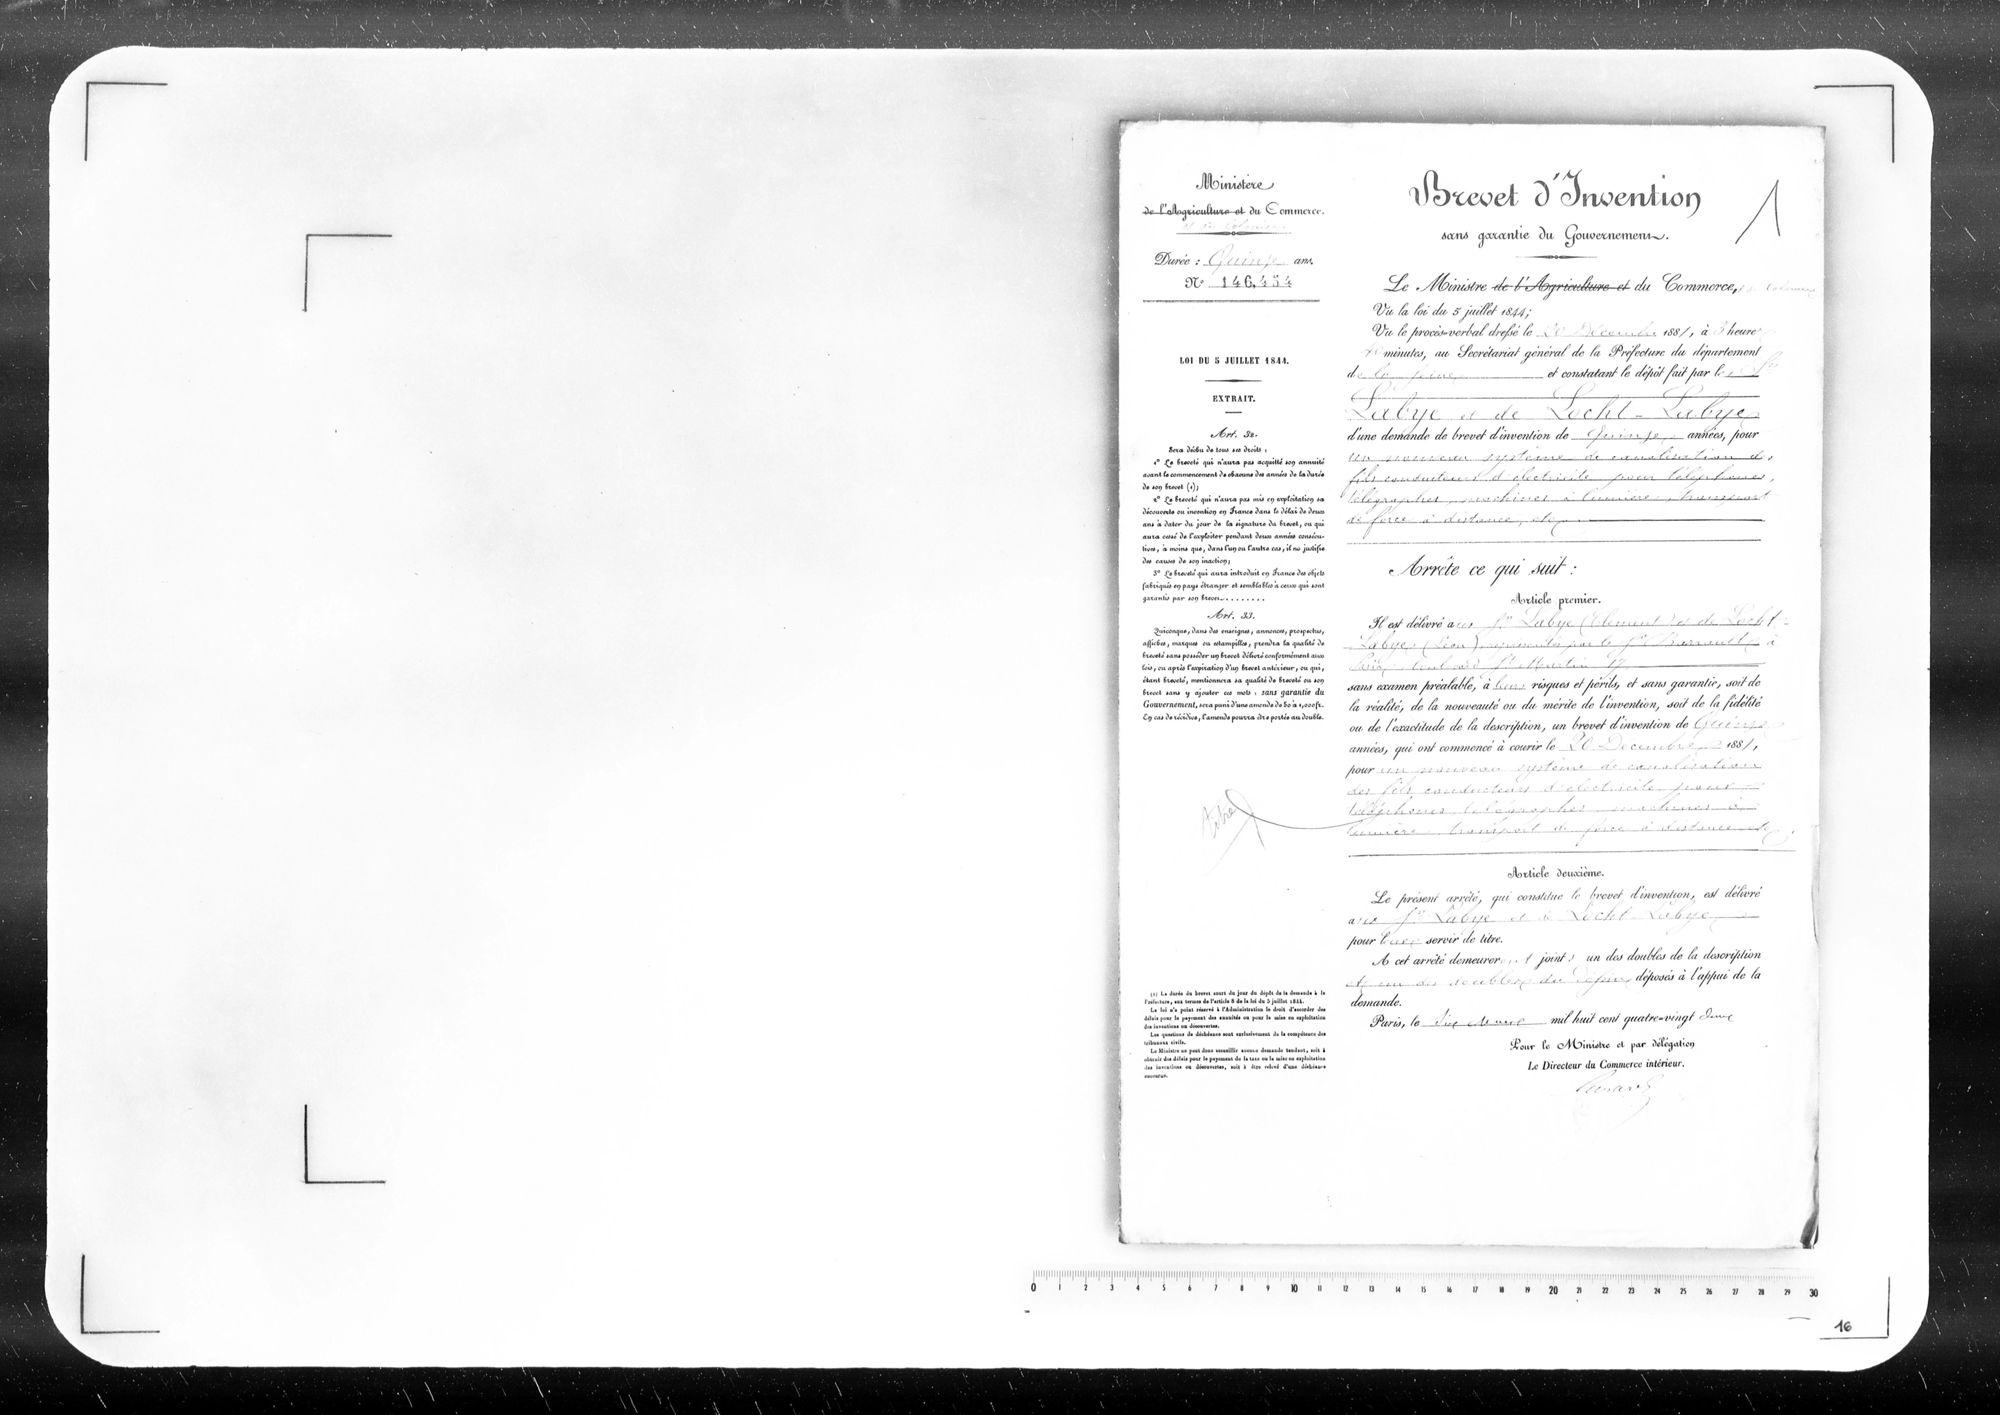 Ministère
de l'Agriculture et du Commerce.
et des Colonies
Durée : Quinze ans.
N° 146,454
LOI DU 5 JUILLET 1844.
EXTRAIT.
Art. 32.
Sera déchu de tous ses droits :
1° Le breveté qui n'aura pas acquitté son annuité
avant le commencement de chacune des années de la durée
de son brevet (1);
2° Le breveté qui n'aura pas mis en exploitation sa
découverte ou invention en France dans le délai de deux
ans à dater du jour de la signature du brevet, ou qui
aura cessé de l'exploiter pendant deux années consécu-
tives, à moins que, dans l'un ou l'autre cas, il ne justifie
des causes de son inaction;
3° Le breveté qui aura introduit en France des objets
fabriqués en pays étranger et semblables à ceux qui sont
garantis par son brevet.........
Art. 33.
Quiconque, dans des enseignes, annonces, prospectus,
affiches, marques ou estampilles, prendra la qualité de
breveté sans posséder un brevet délivré conformément aux
lois, ou après l'expiration d'un brevet antérieur, ou qui,
étant breveté, mentionnera sa qualité de breveté ou son
brevet sans y ajouter ces mots : sans garantie du
Gouvernement, sera puni d'une amende de 50 à 1,000 fr.
En cas de récidive, l'amende pourra être portée au double.
(1) La durée du brevet court du jour du dépôt de la demande à la
Préfecture, aux termes de l'article 8 de la loi du 5 juillet 1844.
La loi n'a point réservé à l'Administration le droit d'accorder des
délais pour le payement des annuités ou pour la mise en exploitation
des inventions ou découvertes.
Les questions de déchéance sont exclusivement de la compétence des
tribunaux civils.
Le Ministre ne peut donc accueillir aucune demande tendant, soit à
obtenir des délais pour le payement de la taxe ou la mise en exploitation
des inventions ou découvertes, soit à être relevé d'une déchéance
encourue.
Brevet d'Invention
1
sans garantie du Gouvernement.
Le Ministre de l'Agriculture et du Commerce, et des Colonies
Vu la loi du 5 juillet 1844;
Vu le procès-verbal dressé le 20 Décembre 1881, à 3 heures
minutes, au Secrétariat général de la Préfecture du département
de la Seine et constatant le dépôt fait par les Srs
Labye et de Locht-Labye
d'une demande de brevet d'invention de Quinze années, pour
un nouveau système de canalisation de
fils conducteurs d'électricité pour téléphones,
télégraphes, machines à lumière, transport
de force à distance, etc.
Arrête ce qui suit :
Article premier.
Il est délivré aux Srs Labye (Clément) et de Locht-
Labye (Léon) représentés par le Sr Barrault à
Paris, boulevard St Martin 17
sans examen préalable, à leurs risques et périls, et sans garantie, soit de
la réalité, de la nouveauté ou du mérite de l'invention, soit de la fidélité
ou de l'exactitude de la description, un brevet d'invention de Quinze
années, qui ont commencé à courir le 20 Décembre 1881,
pour un nouveau système de canalisation
des fils conducteurs d'électricité pour
téléphones, télégraphes, machines à
lumière, transport de force à distance etc.
titre
Article deuxième.
Le présent arrêté, qui constitue le brevet d'invention, est délivré
aux Srs Labye et de Locht-Labye
pour leur servir de titre.
A cet arrêté demeureront joints un des doubles de la description
et un des doubles du dessin déposés à l'appui de la
demande.
Paris, le Six Mars mil huit cent quatre-vingt deux
Pour le Ministre et par délégation
Le Directeur du Commerce intérieur.
0 1 2 3 4 5 6 7 8 9 10 11 12 13 14 15 16 17 18 19 20 21 22 23 24 25 26 27 28 29 30
16